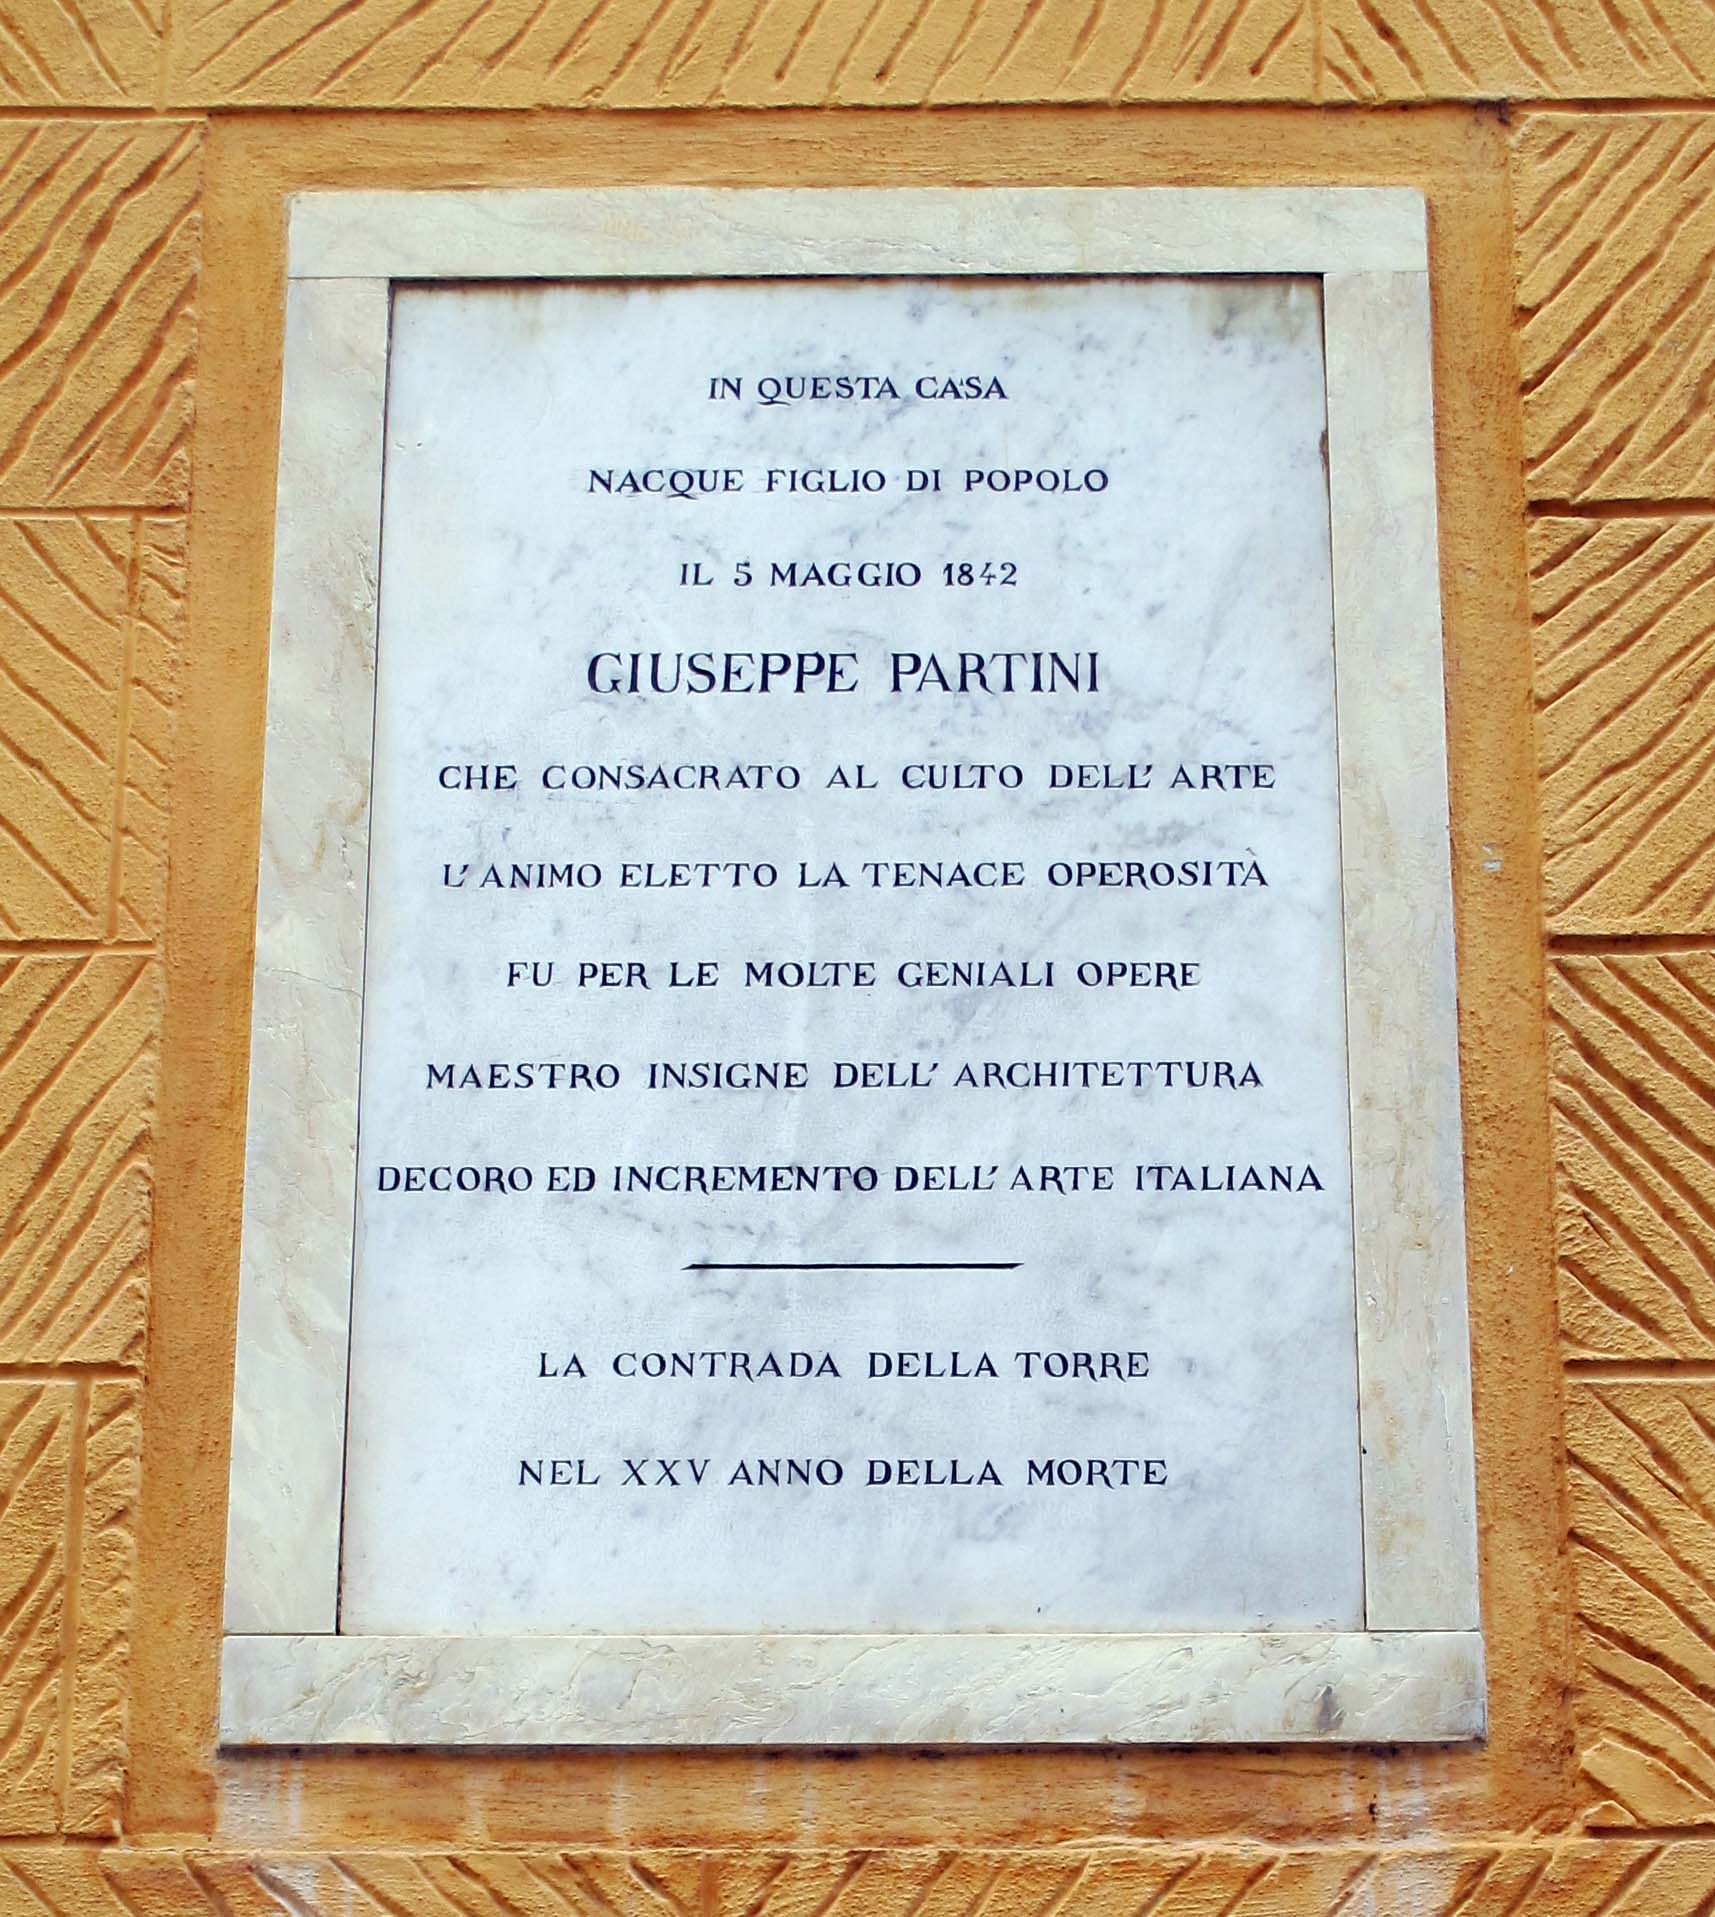 IN QUESTA CASA
NACQUE FIGLIO DI POPOLO
IL 5 MAGGIO 1842
GIUSEPPE PARTINI
CHE CONSACRATO AL CULTO DELL' ARTE
L' ANIMO ELETTO LA TENACE OPEROSITÀ
FU PER LE MOLTE GENIALI OPERE
MAESTRO INSIGNE DELL' ARCHITETTURA
DECORO ED INCREMENTO DELL' ARTE ITALIANA
LA CONTRADA DELLA TORRE
NEL XXV ANNO DELLA MORTE